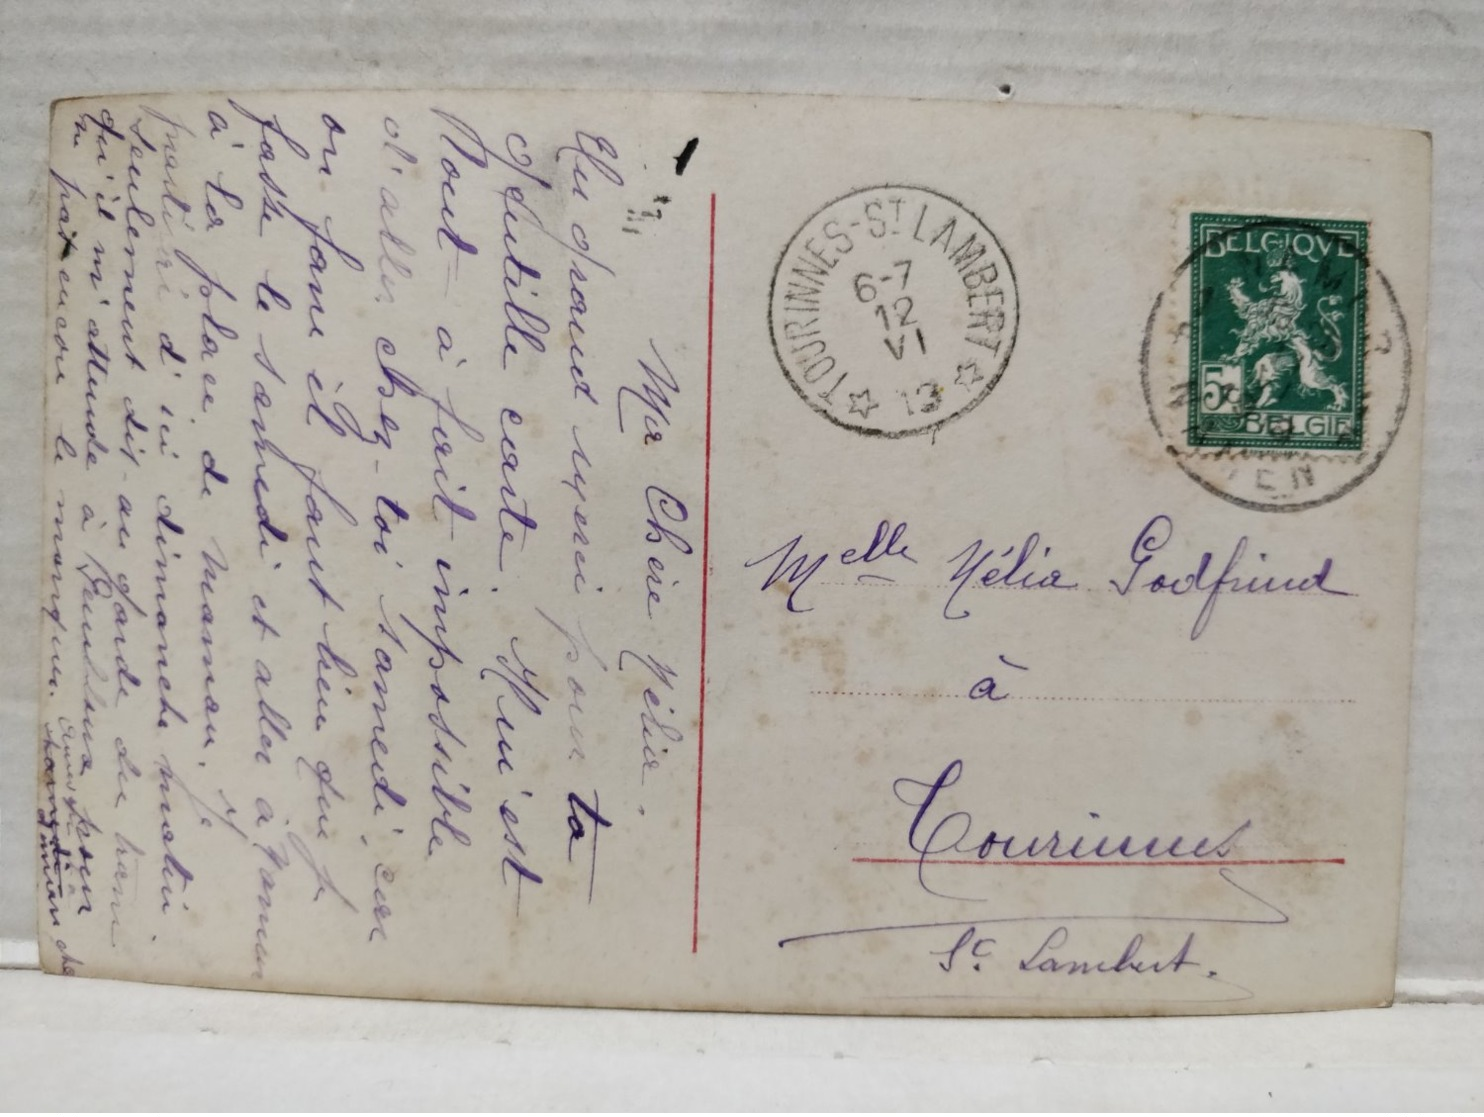 Ma Chère Nélia.
Un grand merci pour ta
gentille carte. Il m'est
tout-à-fait impossible
d'aller chez-toi samedi, car
on fane et faut bien que je
fasse le samedi et aller à Namur
à la place de maman. Je
partirai d'ici dimanche matin
seulement dis-au garde du tram
qu'il m'attende à pour
ne pas encore le manquer.
TOURINNES-ST LAMBERT
6-7
12
VI
13
BELGIQUE
5
BELGIË
Melle Nélia Godfrind
à
Tourinnes
St. Lambert.